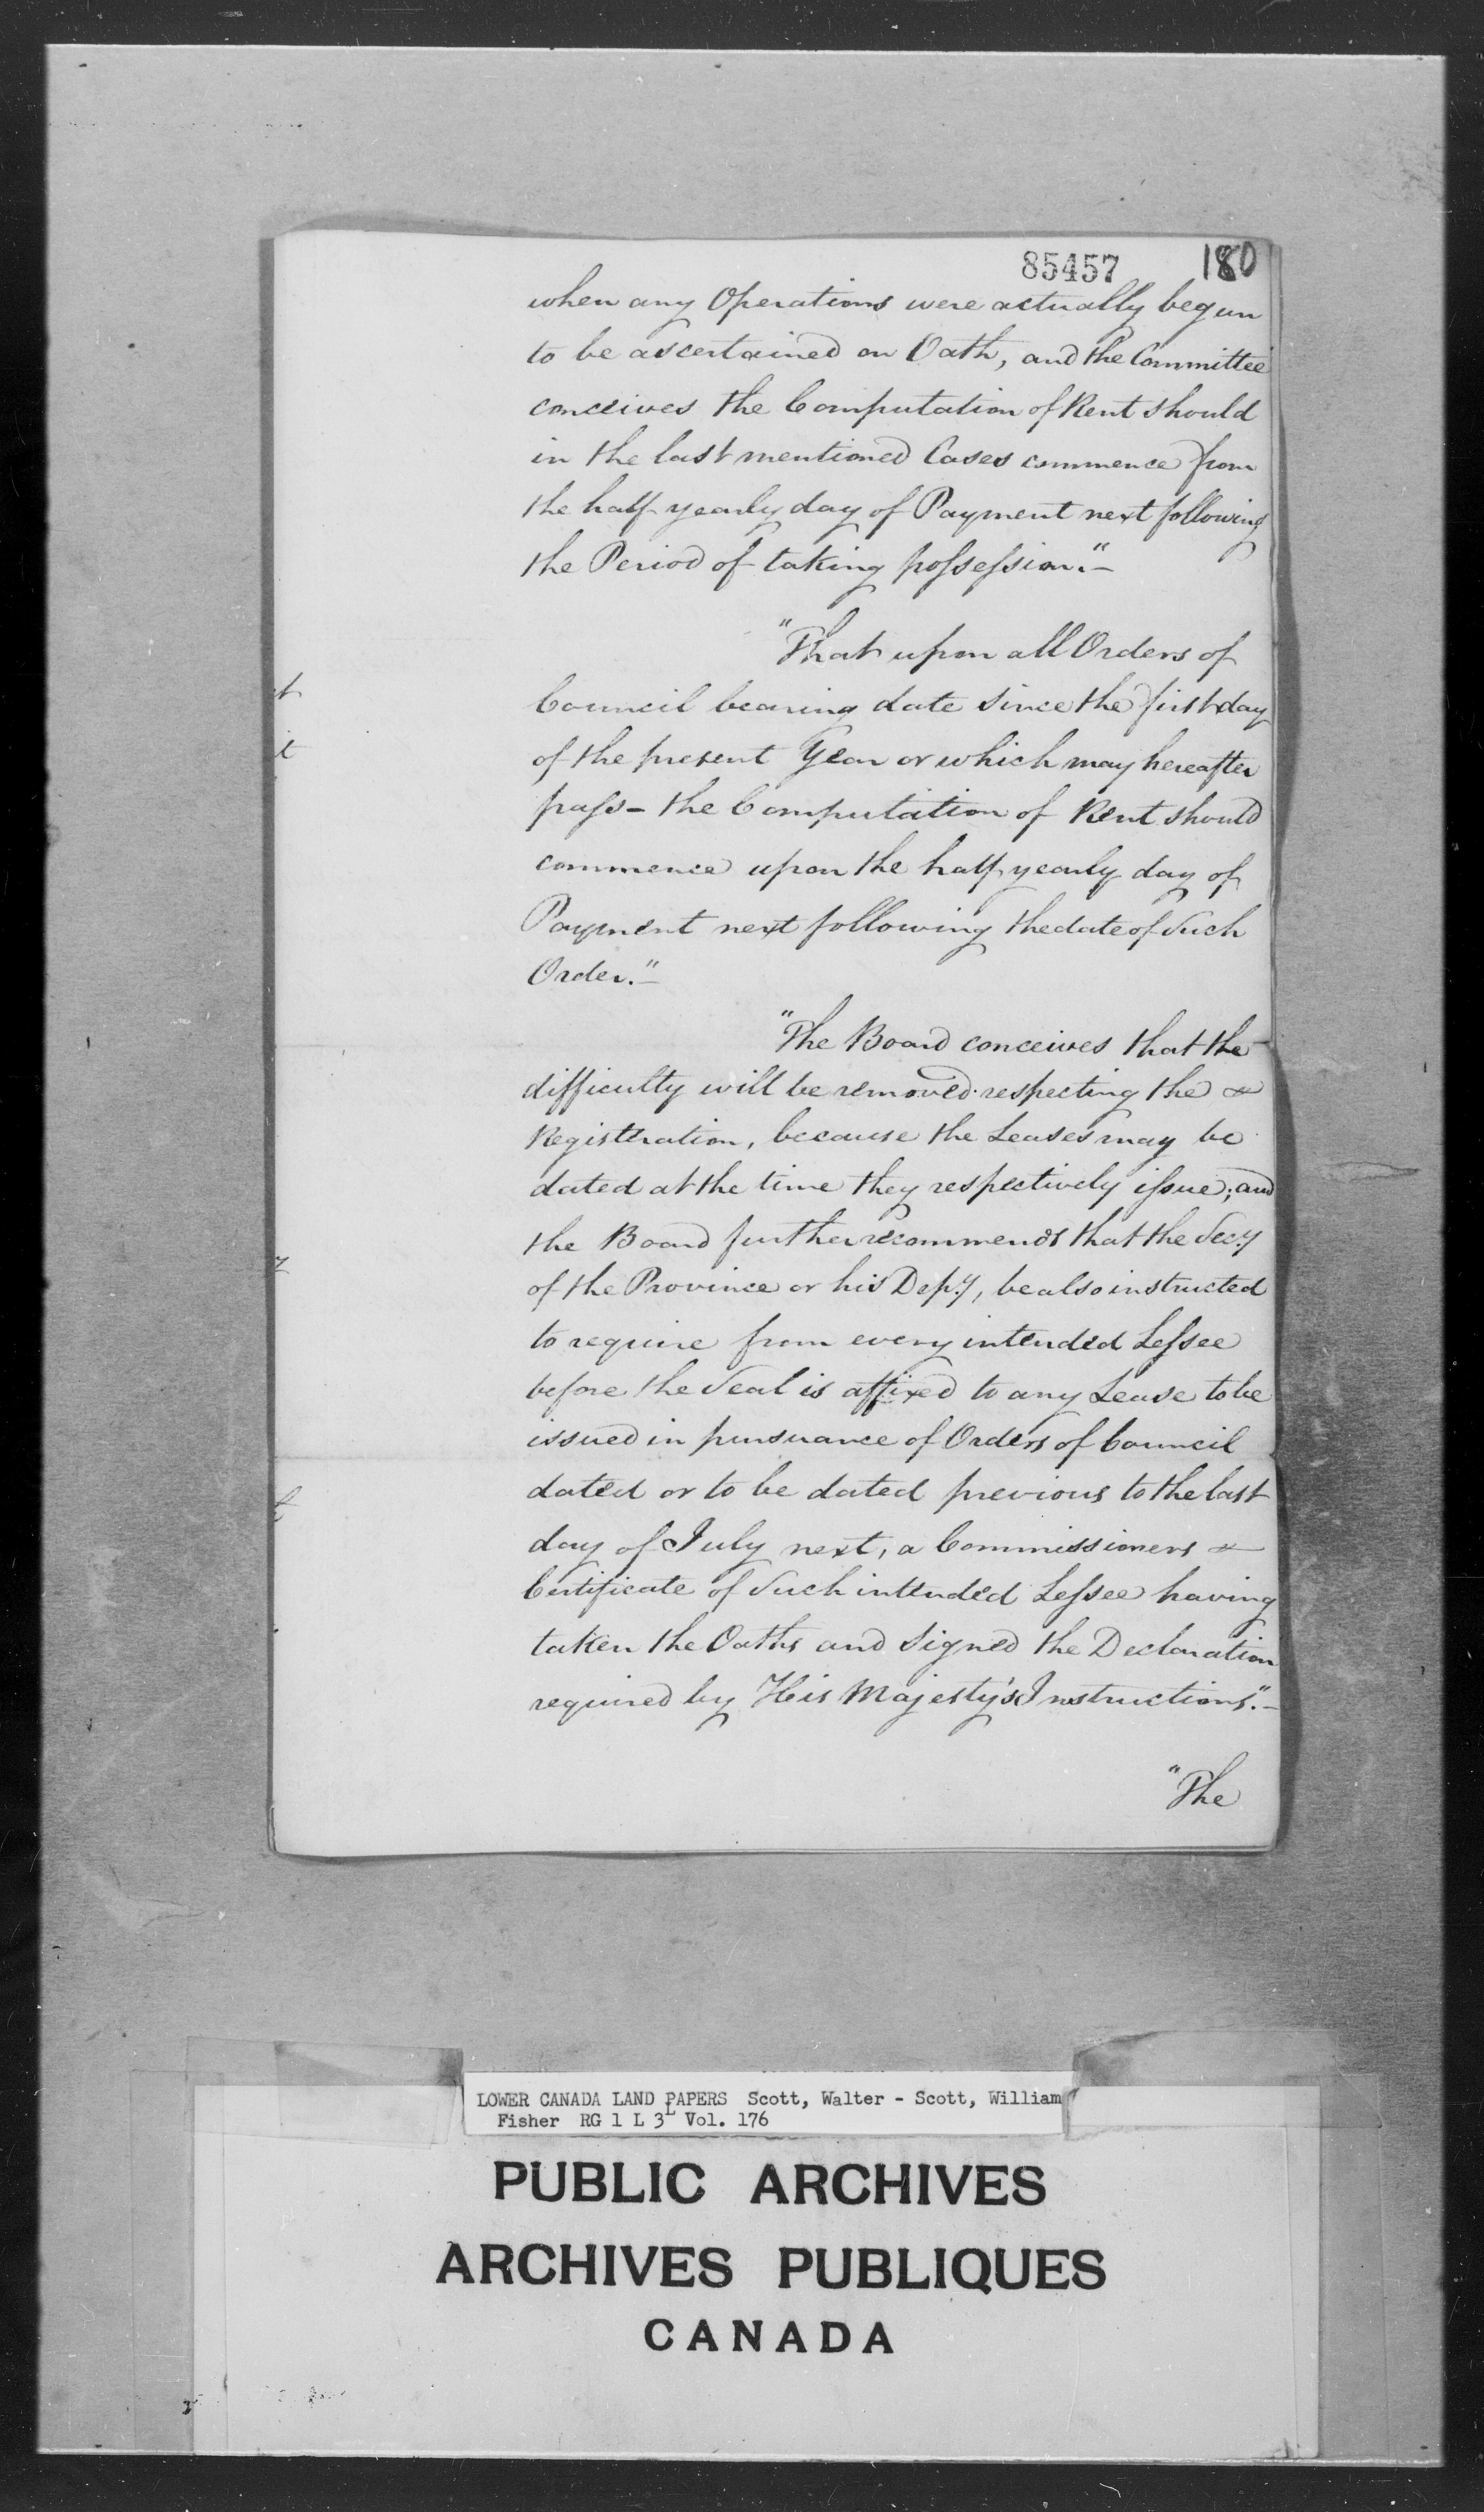 85457 180
when any Operations were actually begun
to be ascertained on Oath, and the Committee
conceives the Computation of Rent should
in the last mentioned Cases commence from
the half yearly day of Payment next following
the Period of taking possession."-
"That upon all Orders of
Council bearing date since the first day
of the present Year or which may hereafter
pass- the Computation of Rent should
commence upon the half yearly day of
Payment next following the date of Such
Order."-
"The Board conceives that the
difficulty will be removed respecting the
Registration, because the Leases may be
dated at the time they respectively issue; and
the Board further recommends that the Secy
of the Province or his Depy, be also instructed
to require from every intended Lessee
before the Seal is affixed to any Lease to be
issued in pursuance of Orders of Council
dated or to be dated previous to the last
day of July next, a Commissioners
Certificate of Such intended Lessee having
taken the Oaths and Signed the Declaration
required by His Majesty's Instructions."-
"The
LOWER CANADA LAND PAPERS Scott, Walter - Scott, William
Fisher RG 1 L 3L Vol. 176
PUBLIC ARCHIVES
ARCHIVES PUBLIQUES
CANADA